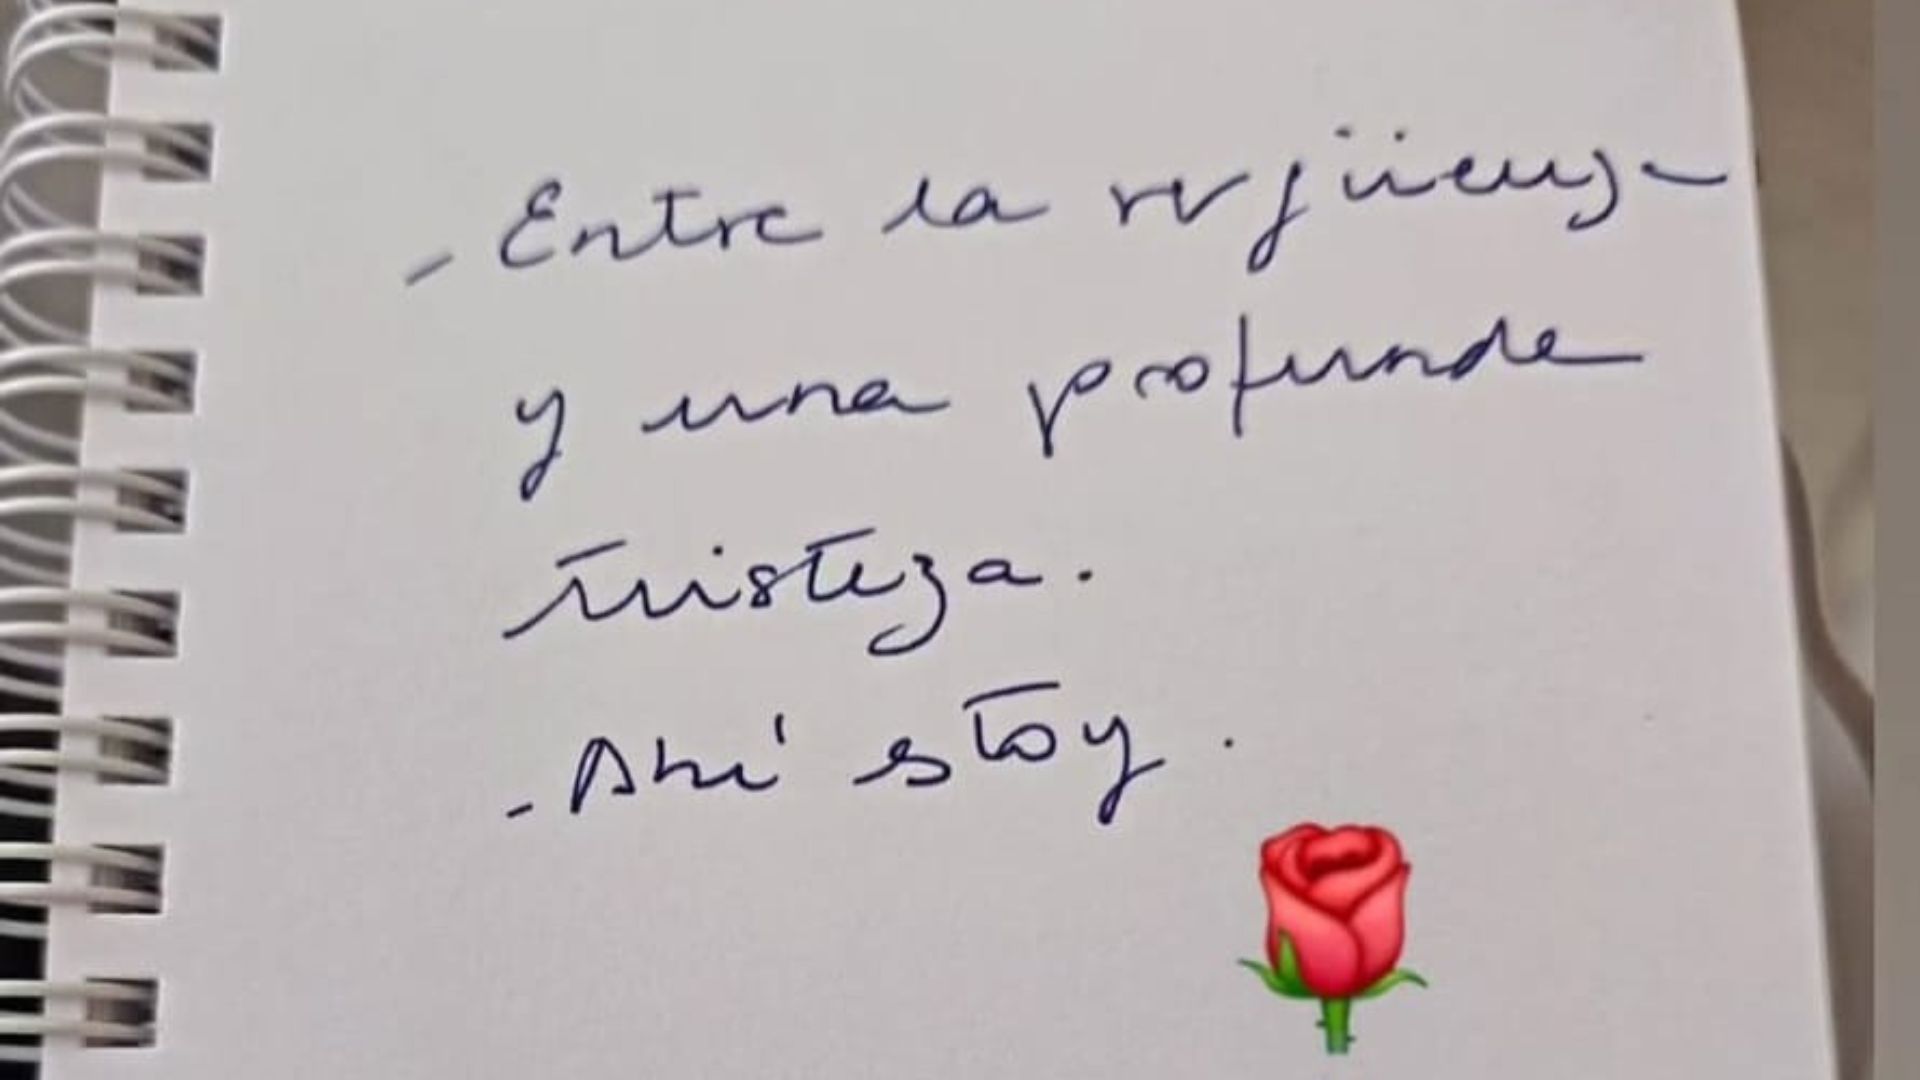 - Entre la vergüenza
y una profunda
tristeza.
- Ahí estoy.